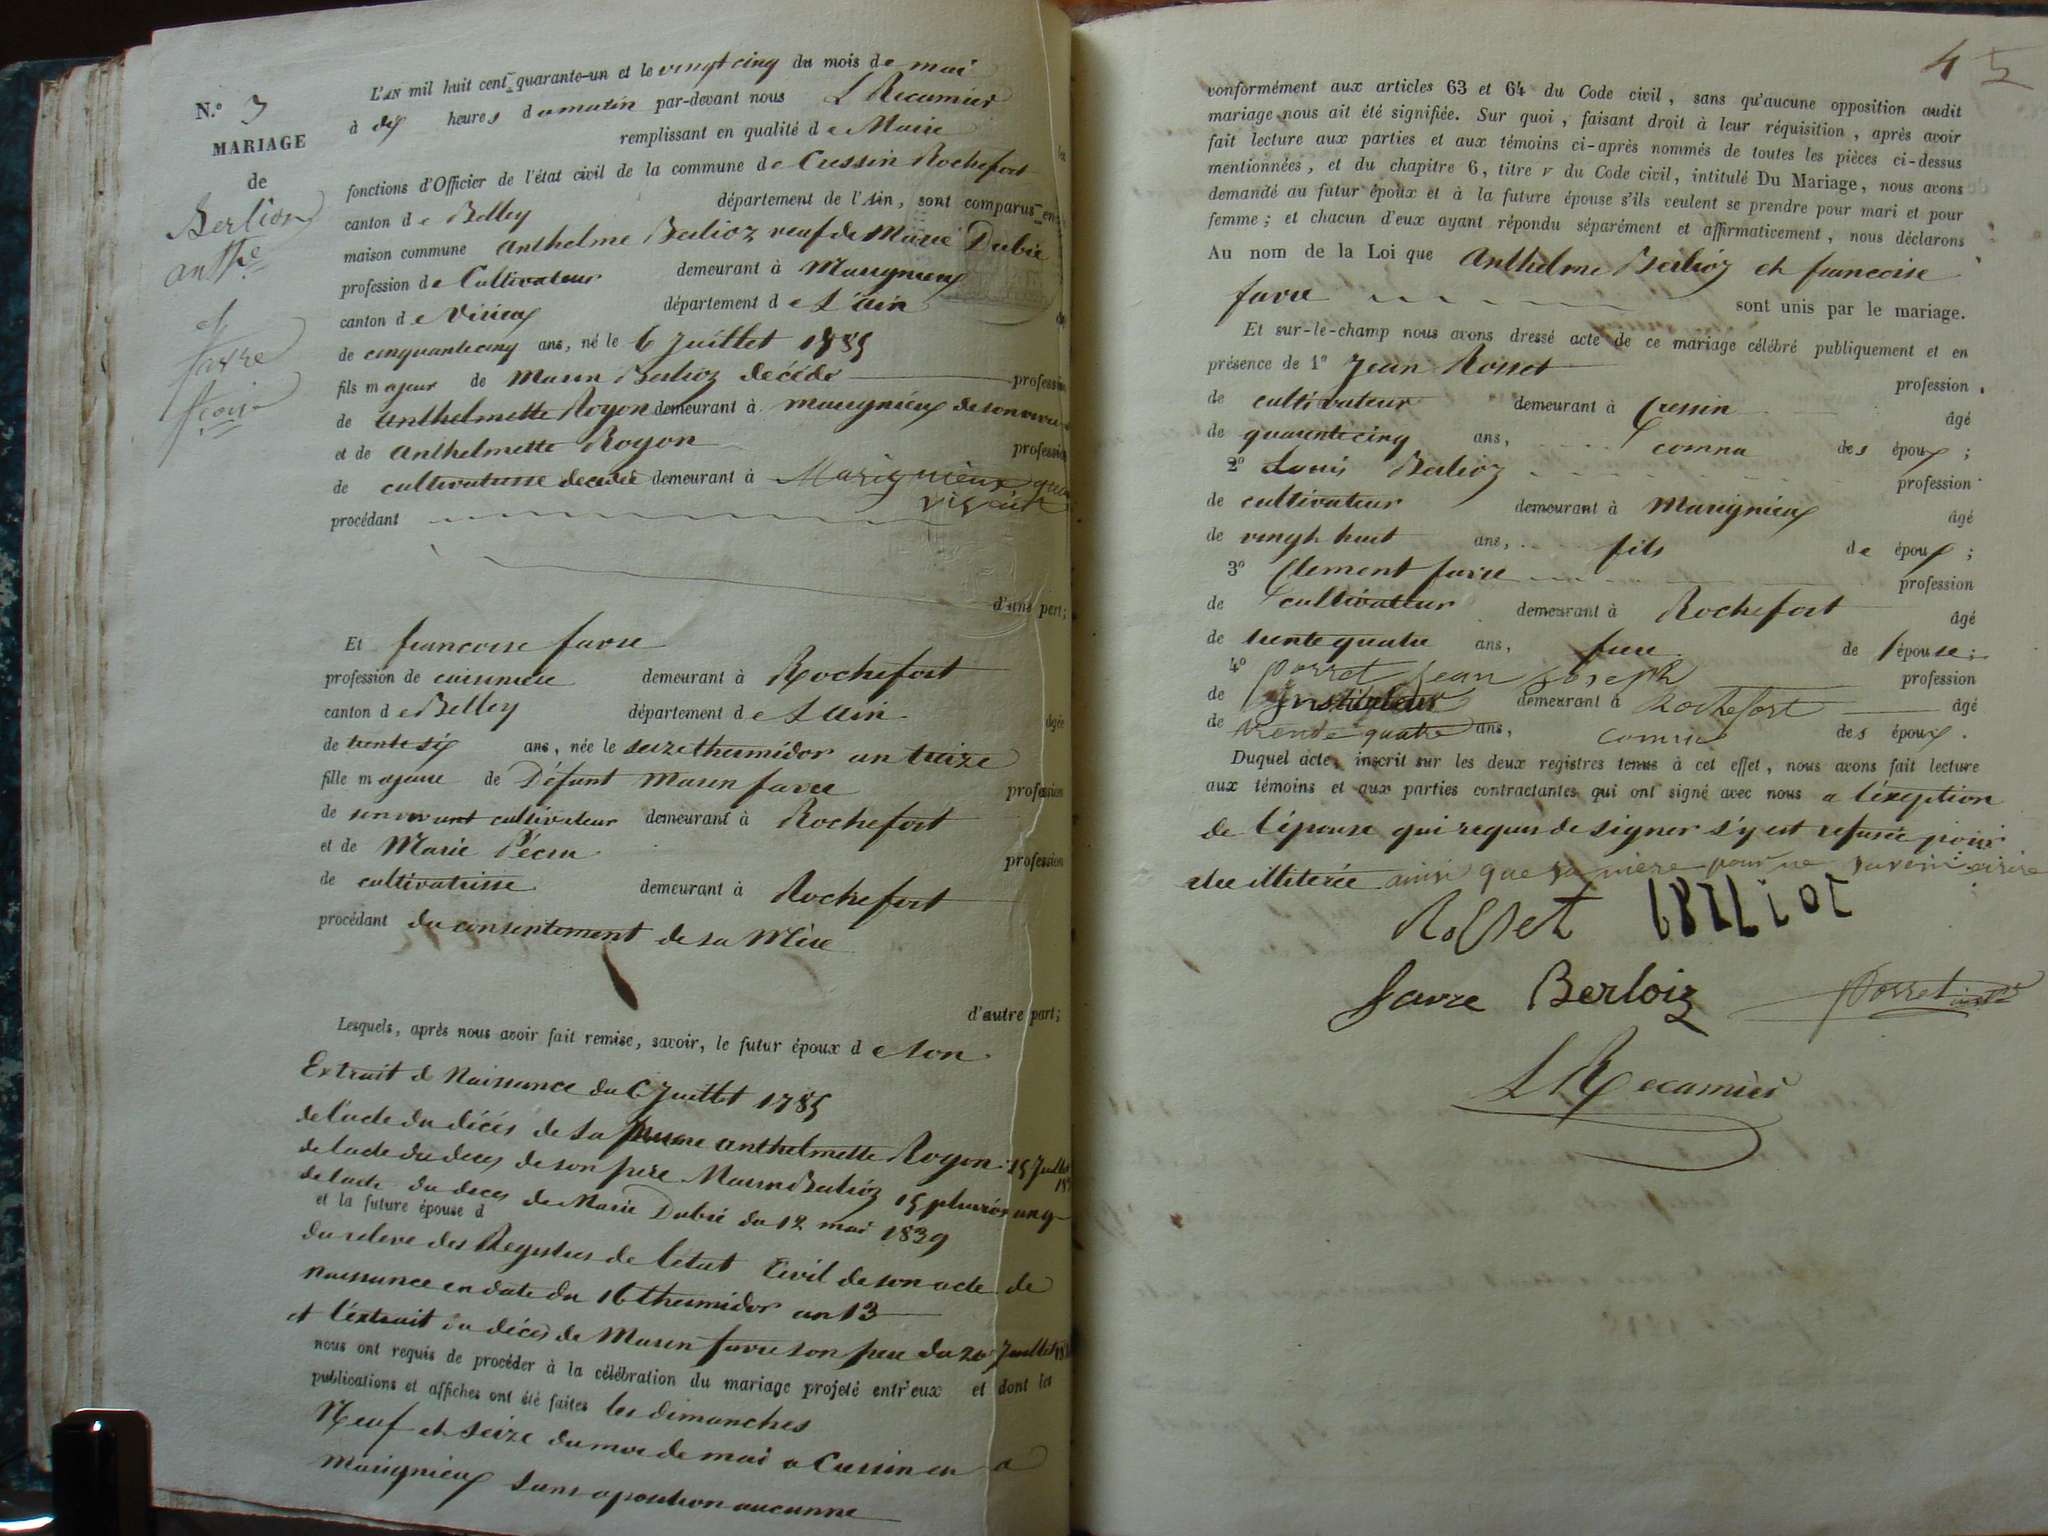 N.o 3
MARIAGE
de
Berlion
anthe
et
favre
fcoise
L'AN mil huit cent quarante-un et le vingt cinq du mois de mai
à dix heures du matin par-devant nous L Recamier
remplissant en qualité de Maire
fonctions d'Officier de l'état civil de la commune de Cressin Rochefort
canton de Belley département de l'Ain, sont comparus en
maison commune anthelme Berlioz veuf de Marie Dubie
profession de Cultivateur demeurant à Marignieux
canton de Virieu département de L'ain
de cinquante cinq ans, né le 6 Juillet 1785
fils majeur de Marin Berlioz décédé profession
de anthelmette Royon demeurant à marignieux de son viva
et de anthelmette Royon profession
de cultivatrisse decedée demeurant à Marignieux quan
vivait
procédant
d'une part;
Et francoise favre
profession de cuisiniere demeurant à Rochefort
canton de Belley département de L'ain
âgée
de trente six ans, née le seize thermidor an treize
fille majeure de Défunt Marin favre profession
de son vivant cultivateur demeurant à Rochefort
et de Marie Pécru profession
de cultivatrisse demeurant à Rochefort
procédant du consentement de sa Mère
d'autre part;
Lesquels, après nous avoir fait remise, savoir, le futur époux de son
Extrait de Naissance du 6 Juillet 1785
de l'acte du décès de sa mere anthelmette Royon 15 Juillet
de lacte du deces de son pere Marin Berlioz 15 pluviôs an 9
de lacte du deces de Marie Dubié du 12 mai 1839
et la future épouse d
du releve des Registres de letat Civil de son acte de
naissance en date du 16 thermidor an 13
et l'extrait du décès de Marin favre son pere du 20 Juillet
nous ont requis de procéder à la célébration du mariage projeté entr'eux et dont les
publications et affiches ont été faites les dimanches
Neuf et seize du mois de mai a Cressin et a
Marignieux sans oposition aucunne
45
conformément aux articles 63 et 64 du Code civil, sans qu'aucune opposition audit
mariage nous ait été signifiée. Sur quoi, faisant droit à leur réquisition, après avoir
fait lecture aux parties et aux témoins ci-après nommés de toutes les pièces ci-dessus
mentionnées, et du chapitre 6, titre v du Code civil, intitulé Du Mariage, nous avons
demandé au futur époux et à la future épouse s'ils veulent se prendre pour mari et pour
femme; et chacun d'eux ayant répondu séparément et affirmativement, nous déclarons
Au nom de la Loi que anthelme Berlioz et francoise
favre sont unis par le mariage.
Et sur-le-champ nous avons dressé acte de ce mariage célébré publiquement et en
présence de 1o Jean Rosset profession
de cultivateur demeurant à Cressin âgé
de quarente cinq ans, connu des époux;
2o Louis Berlioz profession
de cultivateur demeurant à Marignieux âgé
de vingt huit ans, fils de époux;
3o Clement favre profession
de cultivateur demeurant à Rochefort âgé
de trente quatre ans, frere de l'épouse;
4o porret jean joseph profession
de Instituteur demeurant à Rochefort âgé
de trende quatre ans, connu des époux.
Duquel acte, inscrit sur les deux registres tenus à cet effet, nous avons fait lecture
aux témoins et aux parties contractantes qui ont signé avec nous a l'éxeption
de l'épouse qui requis de signer s'y est refusée pour
etre illiterée ainsi que sa mère pour ne savoir ecrire
Rosset
favre Berloiz porret instr
L Recamier